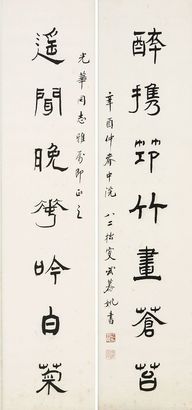 醉携筇竹畫蒼苔
辛酉仲春中浣 八二拙叟武慕姚書
遥聞晚花吟白菊
光華同志雅屬即正之